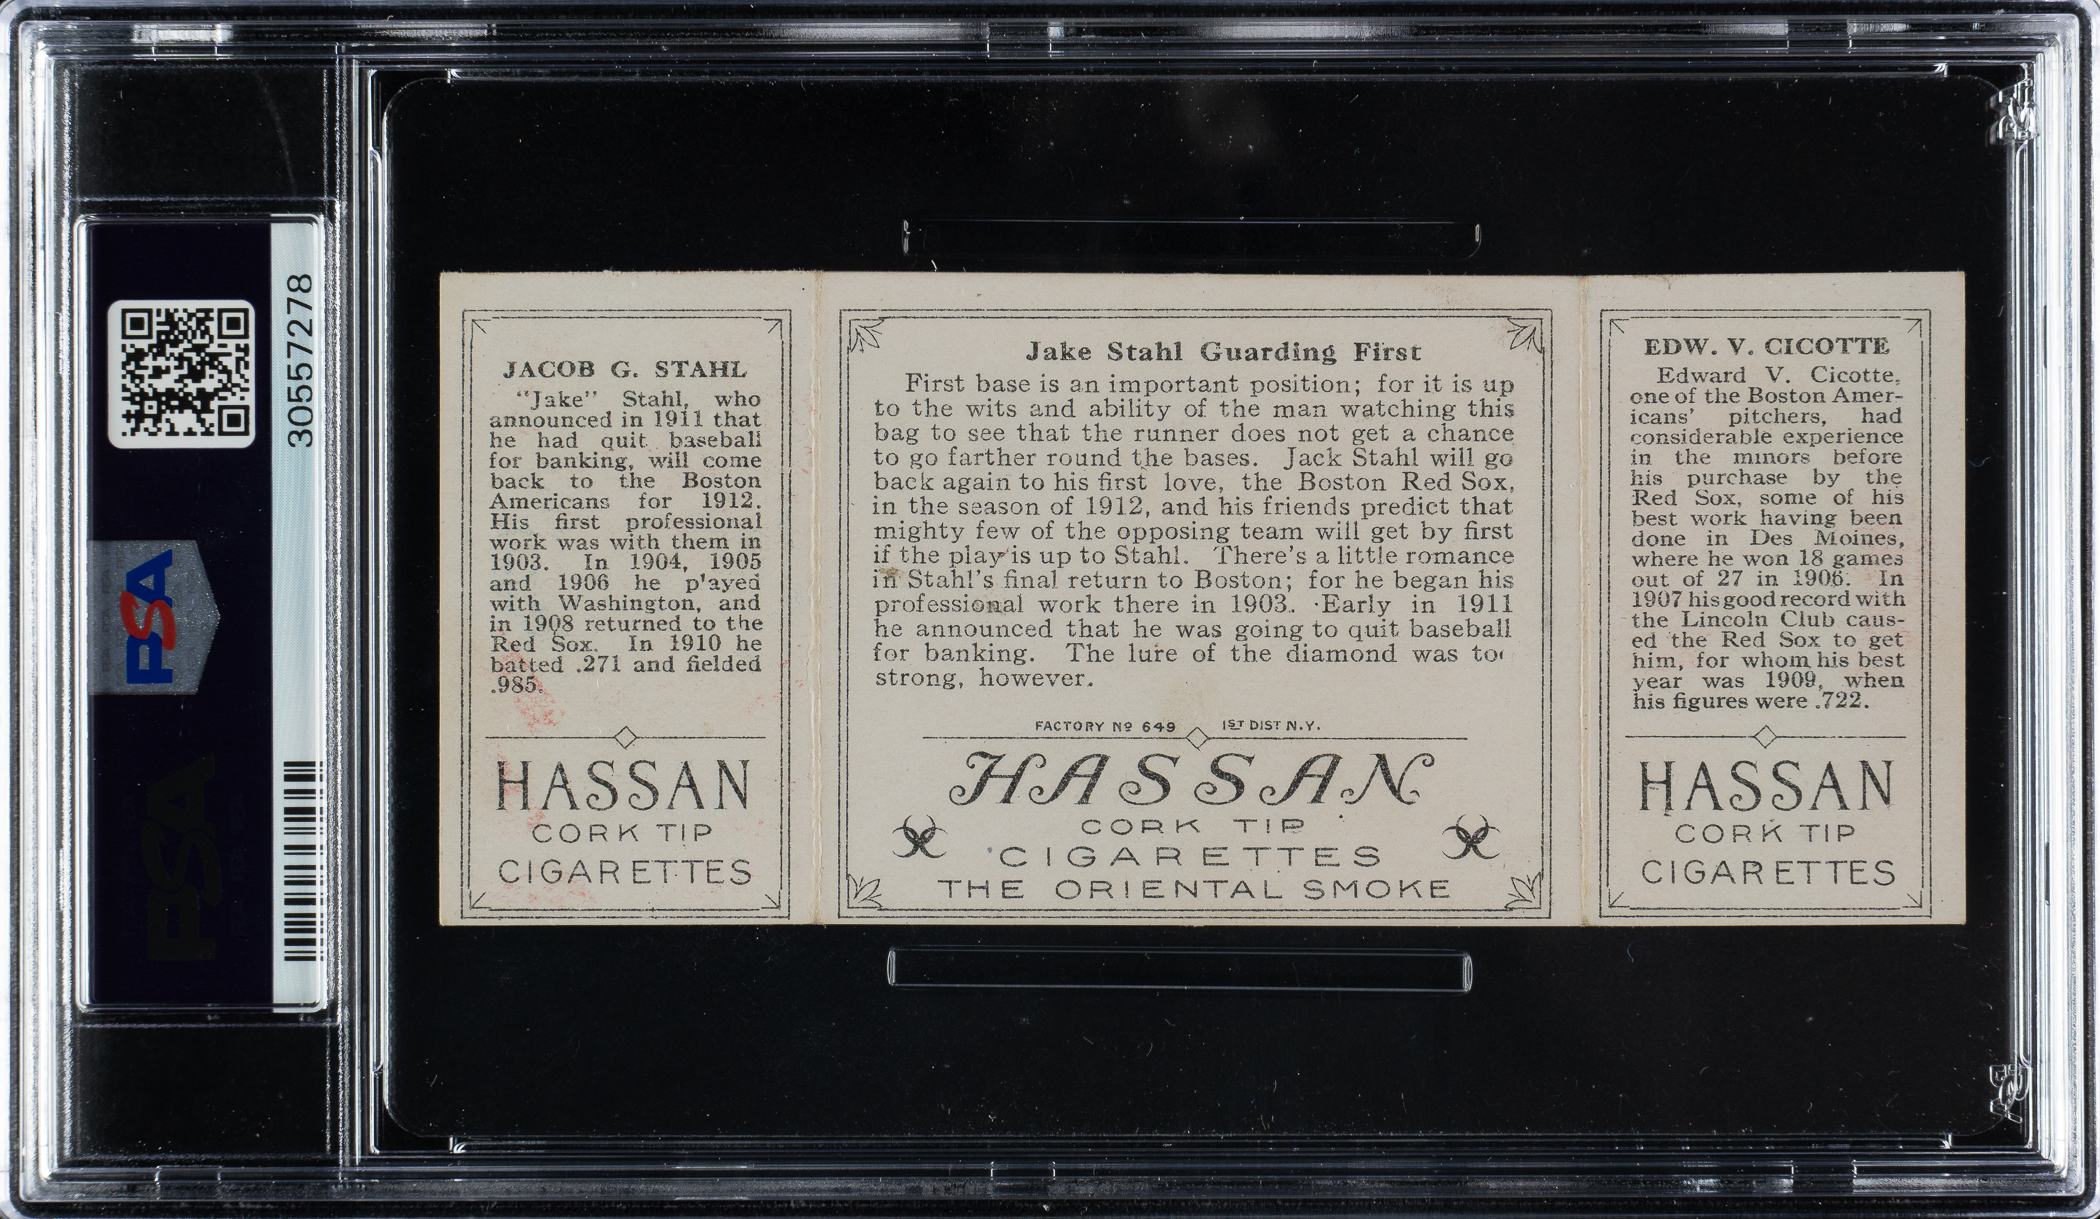 30557278
PSA
PSA
JACOB G. STAHL
"Jake" Stahl, who
announced in 1911 that
he had quit baseball
for banking, will come
back to the Boston
Americans for 1912.
His first professional
work was with them in
1903. In 1904, 1905
and 1906 he p'ayed
with Washington, and
in 1908 returned to the
Red Sox. In 1910 he
batted .271 and fielded
.985.
HASSAN
CORK TIP
CIGARETTES
Jake Stahl Guarding First
First base is an important position; for it is up
to the wits and ability of the man watching this
bag to see that the runner does not get a chance
to go farther round the bases. Jack Stahl will go
back again to his first love, the Boston Red Sox,
in the season of 1912, and his friends predict that
mighty few of the opposing team will get by first
if the play is up to Stahl. There's a little romance
in Stahl's final return to Boston; for he began his
professional work there in 1903. Early in 1911
he announced that he was going to quit baseball
for banking. The lure of the diamond was too
strong, however.
FACTORY Nº 649 1ST DIST N.Y.
HASSAN
CORK TIP
CIGARETTES
THE ORIENTAL SMOKE
EDW. V. CICOTTE
Edward V. Cicotte,
one of the Boston Amer-
icans' pitchers, had
considerable experience
in the minors before
his purchase by the
Red Sox, some of his
best work having been
done in Des Moines,
where he won 18 games
out of 27 in 1906. In
1907 his good record with
the Lincoln Club caus-
ed the Red Sox to get
him, for whom his best
year was 1909, when
his figures were .722.
HASSAN
CORK TIP
CIGARETTES